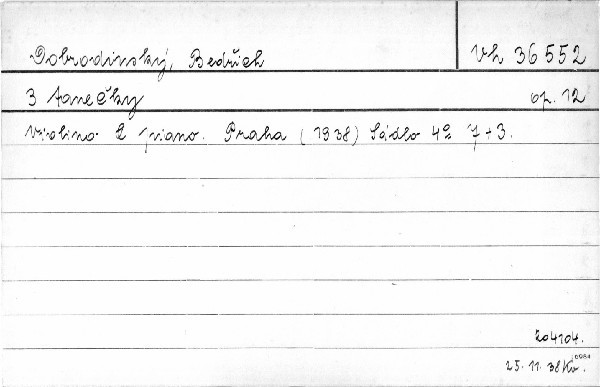 Dobrodinský, Bedřich Vh 36552
3 tanečky op. 12
Violino e piano. Praha (1938) Sádlo 4º 7+3.
204104.
6984
25. 11. 38